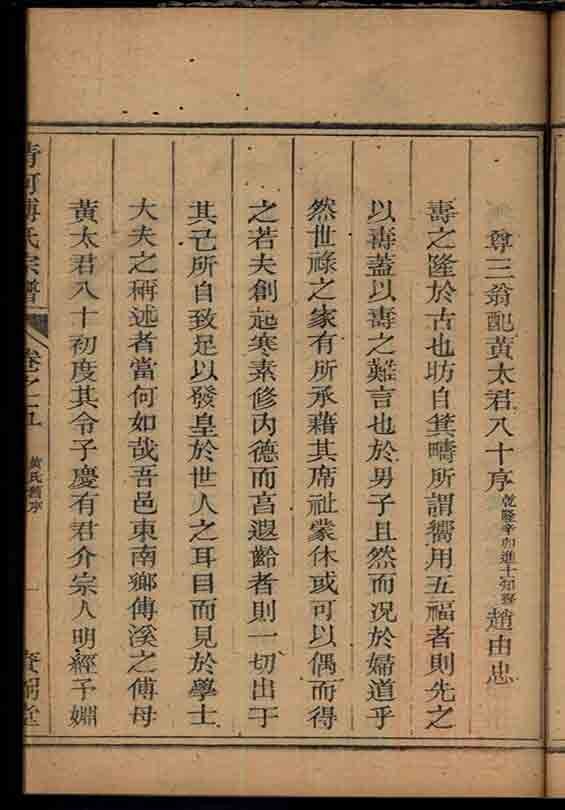 尊三翁配黃太君八十序乾隆辛卯進士知縣趙由忠
壽之隆於古也昉自箕疇所謂嚮用五福者則先之
以壽蓋以壽之難言也於男子且然而況於婦道乎
然世祿之家有所承藉其席祉蒙休或可以偶而得
之若夫創起寒素修內德而享遐齡者則一切出于
其己所自致足以發皇於世人之耳目而見於學士
大夫之稱述者當何如哉吾邑東南鄉傅溪之傅母
黃太君八十初度其令子慶有君介宗人明經予淵
清河傅氏宗譜 卷之五 黃氏壽序 一